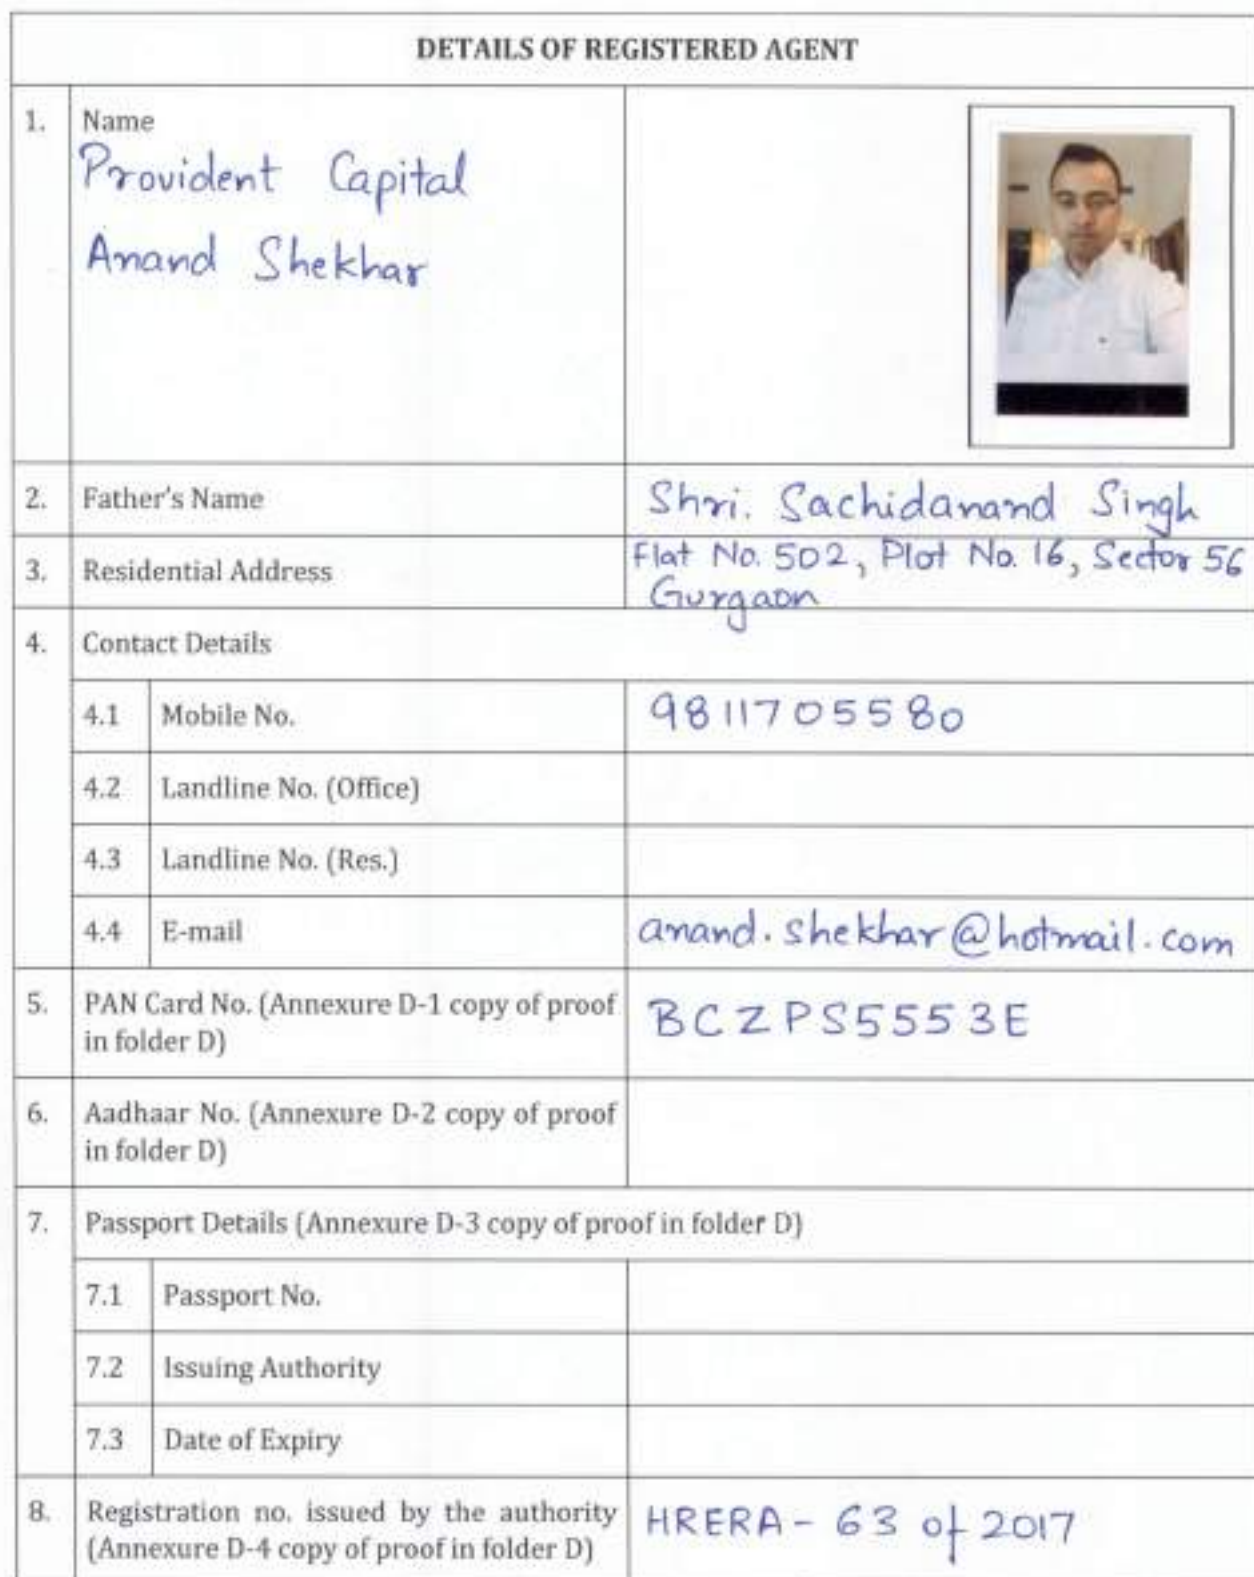 DETAILS OF REGISTERED AGENT
1. Name
Provident Capital
Anand Shekhar
2. Father's Name Shri. Sachidanand Singh
3. Residential Address Flat No. 502, Plot No. 16, Sector 56
Gurgaon
4. Contact Details
4.1 Mobile No. 9811705580
4.2 Landline No. (Office)
4.3 Landline No. (Res.)
4.4 E-mail anand.shekhar@hotmail.com
5. PAN Card No. (Annexure D-1 copy of proof
in folder D) BCZPS5553E
6. Aadhaar No. (Annexure D-2 copy of proof
in folder D)
7. Passport Details (Annexure D-3 copy of proof in folder D)
7.1 Passport No.
7.2 Issuing Authority
7.3 Date of Expiry
8. Registration no. issued by the authority
(Annexure D-4 copy of proof in folder D) HRERA - 63 of 2017